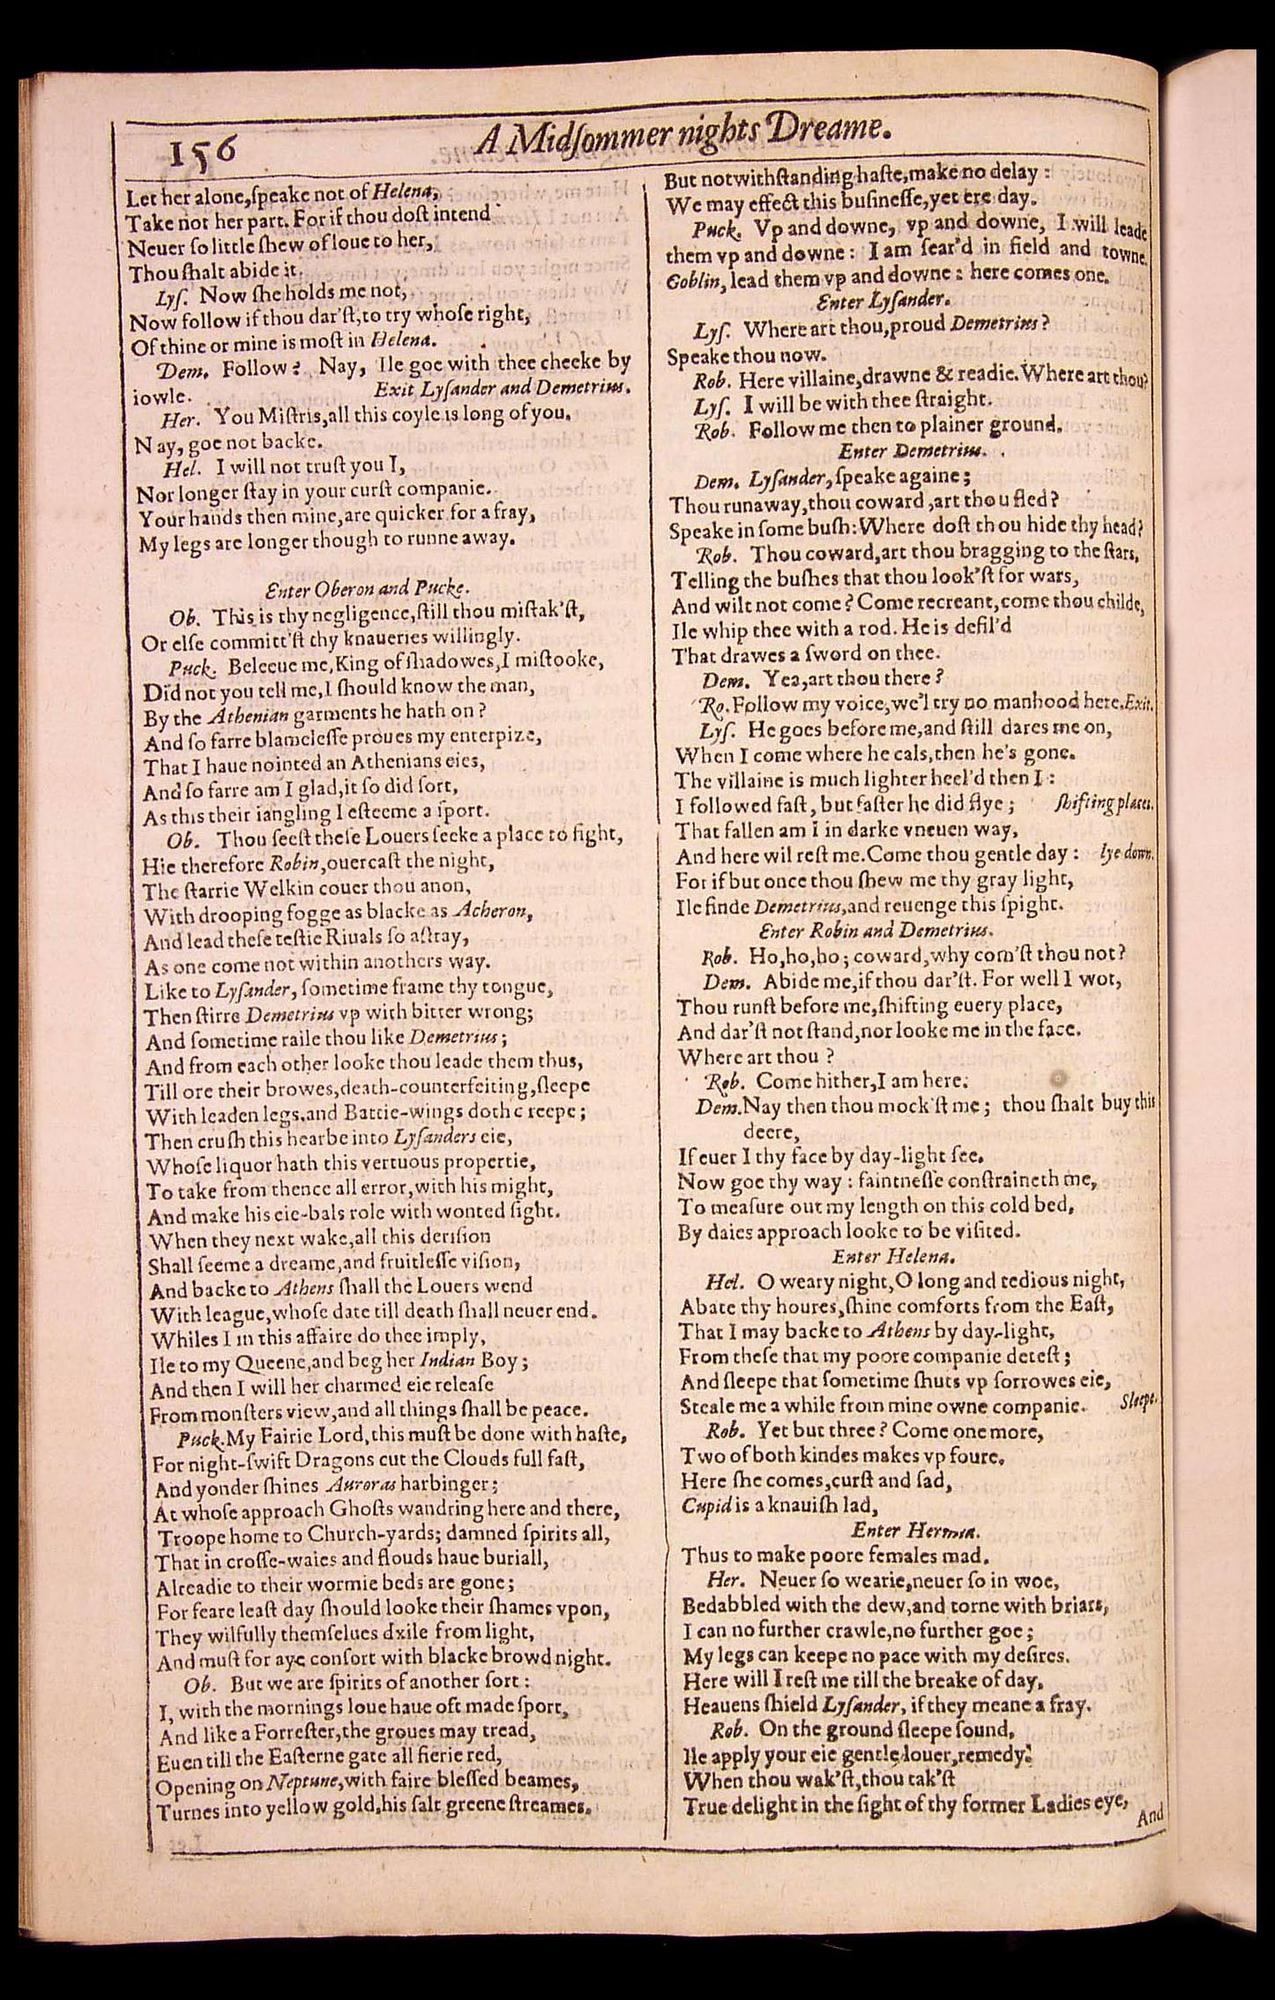 156
A Midſommer nights Dreame.
Let her alone, ſpeake not of Helena,
Take not her part. For if thou doſt intend
Neuer ſo little ſhew of loue to her,
Thou ſhalt abide it.
Lyſ. Now ſhe holds me not,
Now follow if thou dar'ſt, to try whoſe right,
Of thine or mine is moſt in Helena.
Dem. Follow? Nay, Ile goe with thee cheeke by
iowle. Exit Lyſander and Demetrius.
Her. You Miſtris, all this coyle is long of you.
Nay, goe not backe.
Hel. I will not truſt you I,
Nor longer ſtay in your curſt companie.
Your hands then mine, are quicker for a fray,
My legs are longer though to runne away.
Enter Oberon and Pucke.
Ob. This is thy negligence, ſtill thou miſtak'ſt,
Or elſe committ'ſt thy knaueries willingly.
Puck. Beleeue me, King of ſhadowes, I miſtooke,
Did not you tell me, I ſhould know the man,
By the Athenian garments he hath on?
And ſo farre blameleſſe proues my enterpize,
That I haue nointed an Athenians eies,
And ſo farre am I glad, it ſo did ſort,
As this their iangling I eſteeme a ſport.
Ob. Thou ſeeſt theſe Louers ſeeke a place to fight,
Hie therefore Robin, ouercaſt the night,
The ſtarrie Welkin couer thou anon,
With drooping fogge as blacke as Acheron,
And lead theſe teſtie Riuals ſo aſtray,
As one come not within anothers way.
Like to Lyſander, ſometime frame thy tongue,
Then ſtirre Demetrius vp with bitter wrong;
And ſometime raile thou like Demetrius;
And from each other looke thou leade them thus,
Till ore their browes, death-counterfeiting, ſleepe
With leaden legs, and Battie-wings doth creepe;
Then cruſh this hearbe into Lyſanders eie,
Whoſe liquor hath this vertuous propertie,
To take from thence all error, with his might,
And make his eie-bals role with wonted ſight.
When they next wake, all this deriſion
Shall ſeeme a dreame, and fruitleſſe viſion,
And backe to Athens ſhall the Louers wend
With league, whoſe date till death ſhall neuer end.
Whiles I in this affaire do thee imply,
Ile to my Queene, and beg her Indian Boy;
And then I will her charmed eie releaſe
From monſters view, and all things ſhall be peace.
Puck. My Fairie Lord, this muſt be done with haſte,
For night-ſwift Dragons cut the Clouds full faſt,
And yonder ſhines Auroras harbinger;
At whoſe approach Ghoſts wandring here and there,
Troope home to Church-yards; damned ſpirits all,
That in croſſe-waies and flouds haue buriall,
Alreadie to their wormie beds are gone;
For feare leaſt day ſhould looke their ſhames vpon,
They wilfully themſelues dxile from light,
And muſt for aye conſort with blacke browd night.
Ob. But we are ſpirits of another ſort:
I, with the mornings loue haue oft made ſport,
And like a Forreſter, the groues may tread,
Euen till the Eaſterne gate all fierie red,
Opening on Neptune, with faire bleſſed beames,
Turnes into yellow gold, his ſalt greene ſtreames.
But notwithſtanding haſte, make no delay:
We may effect this buſineſſe, yet ere day.
Puck. Vp and downe, vp and downe, I will leade
them vp and downe: I am fear'd in field and towne.
Goblin, lead them vp and downe: here comes one.
Enter Lyſander.
Lyſ. Where art thou, proud Demetrius?
Speake thou now.
Rob. Here villaine, drawne & readie. Where art thou?
Lyſ. I will be with thee ſtraight.
Rob. Follow me then to plainer ground.
Enter Demetrius.
Dem. Lyſander, ſpeake againe;
Thou runaway, thou coward, art thou fled?
Speake in ſome buſh: Where doſt thou hide thy head?
Rob. Thou coward, art thou bragging to the ſtars,
Telling the buſhes that thou look'ſt for wars,
And wilt not come? Come recreant, come thou childe,
Ile whip thee with a rod. He is defil'd
That drawes a ſword on thee.
Dem. Yea, art thou there?
Ro. Follow my voice, we'l try no manhood here. Exit.
Lyſ. He goes before me, and ſtill dares me on,
When I come where he cals, then he's gone.
The villaine is much lighter heel'd then I:
I followed faſt, but faſter he did flye; ſhifting places.
That fallen am I in darke vneuen way,
And here wil reſt me. Come thou gentle day: lye down.
For if but once thou ſhew me thy gray light,
Ile finde Demetrius, and reuenge this ſpight.
Enter Robin and Demetrius.
Rob. Ho, ho, ho; coward, why com'ſt thou not?
Dem. Abide me, if thou dar'ſt. For well I wot,
Thou runſt before me, ſhifting euery place,
And dar'ſt not ſtand, nor looke me in the face.
Where art thou?
Rob. Come hither, I am here.
Dem. Nay then thou mock'ſt me; thou ſhalt buy this
deere,
If euer I thy face by day-light ſee.
Now goe thy way: faintneſſe conſtraineth me,
To meaſure out my length on this cold bed,
By daies approach looke to be viſited.
Enter Helena.
Hel. O weary night, O long and tedious night,
Abate thy houres, ſhine comforts from the Eaſt,
That I may backe to Athens by day-light,
From theſe that my poore companie deteſt;
And ſleepe that ſometime ſhuts vp ſorrowes eie,
Steale me a while from mine owne companie. Sleepe.
Rob. Yet but three? Come one more,
Two of both kindes makes vp foure.
Here ſhe comes, curſt and ſad,
Cupid is a knauiſh lad,
Enter Hermia.
Thus to make poore females mad.
Her. Neuer ſo wearie, neuer ſo in woe,
Bedabbled with the dew, and torne with briars,
I can no further crawle, no further goe;
My legs can keepe no pace with my deſires.
Here will I reſt me till the breake of day,
Heauens ſhield Lyſander, if they meane a fray.
Rob. On the ground ſleepe ſound,
Ile apply your eie gentle louer, remedy.
When thou wak'ſt, thou tak'ſt
True delight in the ſight of thy former Ladies eye,
And